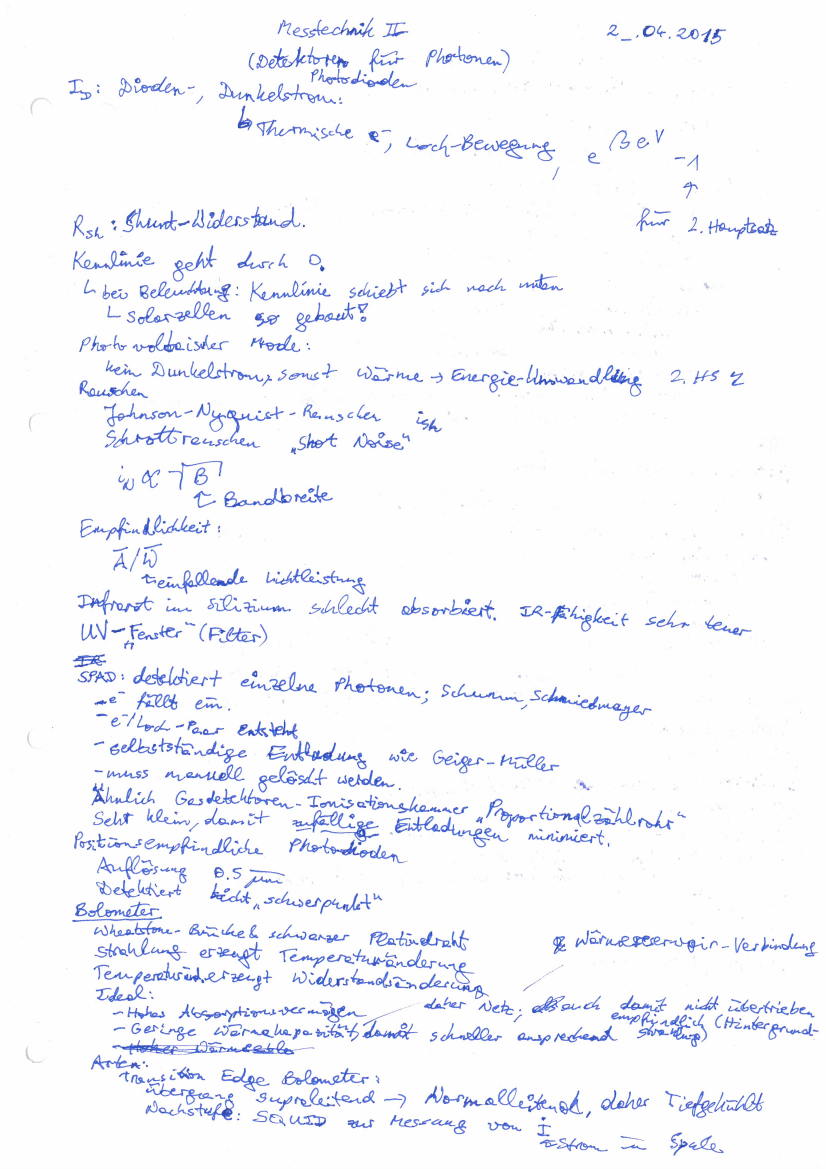 Messtechnik II
2_.04.2015
(Detektoren für Photonen)
Photodioden
I_D: Dioden-, Dunkelstrom:
↳ Thermische e⁻, Loch-Bewegung, e^{βeV} -1
↑
für 2. Hauptsatz
R_sh: Shunt-Widerstand.
Kennlinie geht durch 0.
↳ bei Beleuchtung: Kennlinie schiebt sich nach unten
↳ Solarzellen so gebaut!
Photovoltaischer Mode:
kein Dunkelstrom, sonst Wärme → Energie-Umwandlung 2. HS ↯
Rauschen
Johnson-Nyquist-Rauschen i_sh
Schrottrauschen „Shot Noise"
i_N ∝ √B
↑ Bandbreite
Empfindlichkeit:
A/W
↑ einfallende Lichtleistung
Infrarot im Silizium schlecht absorbiert. IR-Fähigkeit sehr teuer
UV-„Fenster" (Filter)
SPAD: detektiert einzelne Photonen; Schumm, Schmiedmayer
- e⁻ fällt ein.
- e⁻/Loch-Paar entsteht
- selbstständige Entladung wie Geiger-Müller
- muss manuell gelöscht werden.
Ähnlich Gasdetektoren-Ionisationskammer „Proportionalzählrohr"
Sehr klein, damit zufällige Entladungen minimiert.
Positionsempfindliche Photodioden
Auflösung 0.5 µm
Detektiert Licht„schwerpunkt"
Bolometer
Wheatstone-Brücke & schwarzer Platindraht
& Wärmereservoir-Verbindung
Strahlung erzeugt Temperaturänderung
Temperaturänd. erzeugt Widerstandsänderung
Ideal:
- Hohes Absorptionsvermögen
daher Netz; auch damit nicht übertrieben
empfindlich (Hintergrund-
strahlung)
- Geringe Wärmekapazität, damit schneller ansprechend
Arten:
Transition Edge Bolometer:
Übergang supraleitend → Normalleitend, daher Tiefgekühlt
Nachstufe: SQUID zur Messung von I
Strom in Spule